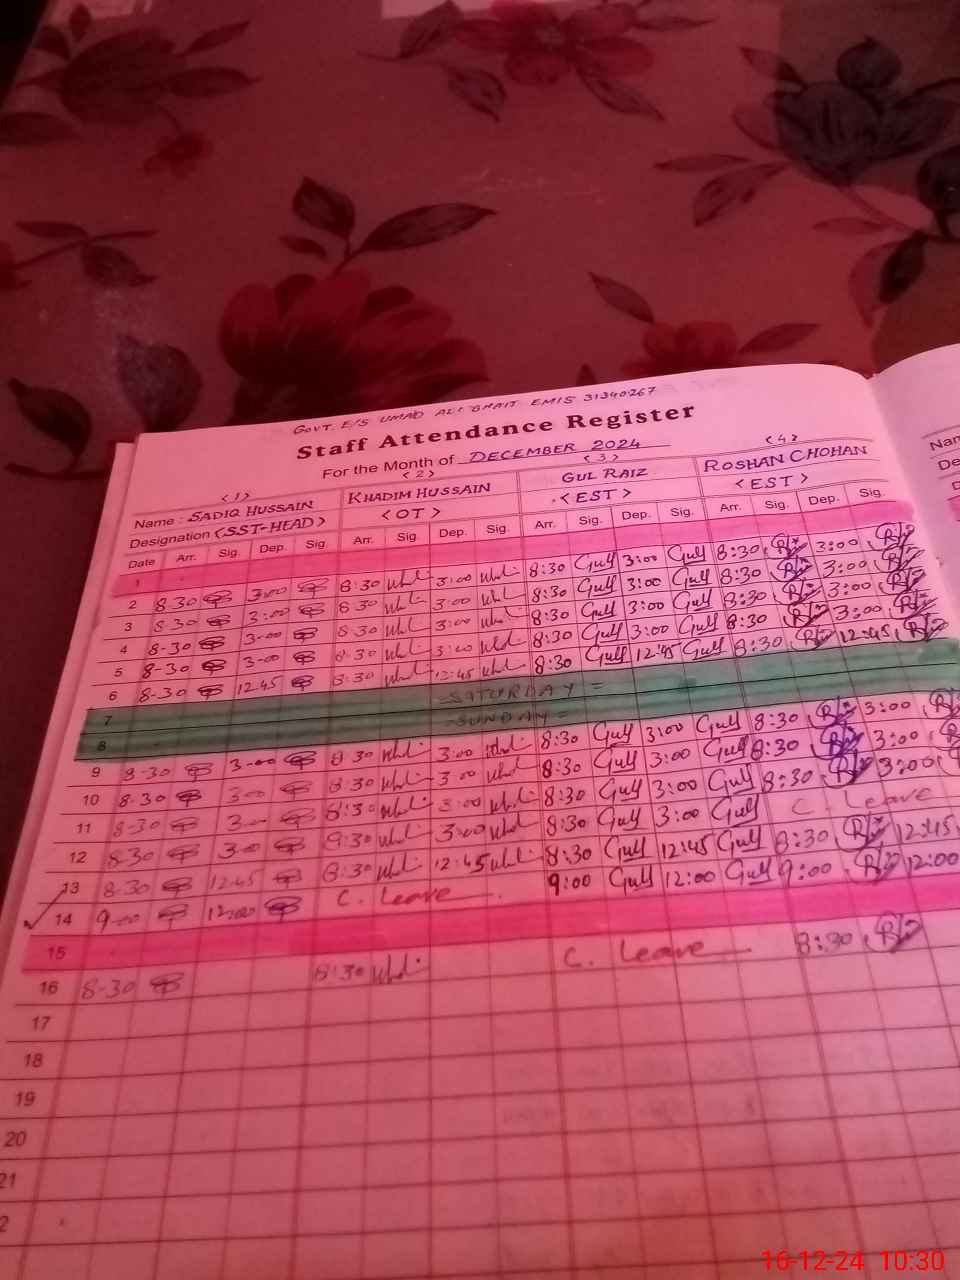 GOVT. E/S UMAD ALI BHAIT EMIS 31340267
Staff Attendance Register
For the Month of DECEMBER 2024
<1> <2> <3> <4>
Name : SADIQ HUSSAIN KHADIM HUSSAIN GUL RAIZ ROSHAN CHOHAN
Designation <SST-HEAD> <OT> <EST> <EST>
Date Arr. Sig. Dep. Sig. Arr. Sig. Dep. Sig. Arr. Sig. Dep. Sig. Arr. Sig. Dep. Sig.
1
2 8-30 3-00 8:30 3:00 8:30 Gull 3:00 Gull 8:30 3:00
3 8-30 3:00 8:30 3:00 8:30 Gull 3:00 Gull 8:30 3:00
4 8-30 3-00 8:30 3:00 8:30 Gull 3:00 Gull 8:30 3:00
5 8-30 3-00 8:30 3:00 8:30 Gull 3:00 Gull 8:30 3:00
6 8-30 12-45 8:30 12:45 8:30 Gull 12:45 Gull 8:30 12:45
7 =SATURDAY=
8 =SUNDAY=
9 8-30 3-00 8:30 3:00 8:30 Gull 3:00 Gull 8:30 3:00
10 8-30 3-00 8:30 3:00 8:30 Gull 3:00 Gull 8:30 3:00
11 8-30 3-00 8:30 3:00 8:30 Gull 3:00 Gull 8:30 3:00
12 8-30 3-00 3:00 8:30 Gull 3:00 Gull C. Leave
13 8-30 12-45 8:30 12:45 8:30 Gull 12:45 Gull 8:30 12:45
14 9-00 12-00 C. Leave 9:00 Gull 12:00 Gull 9:00 12:00
15
16 8-30 8:30 C. Leave 8:30
17
18
19
20
21
2
Nam
De
D
16-12-24 10:30